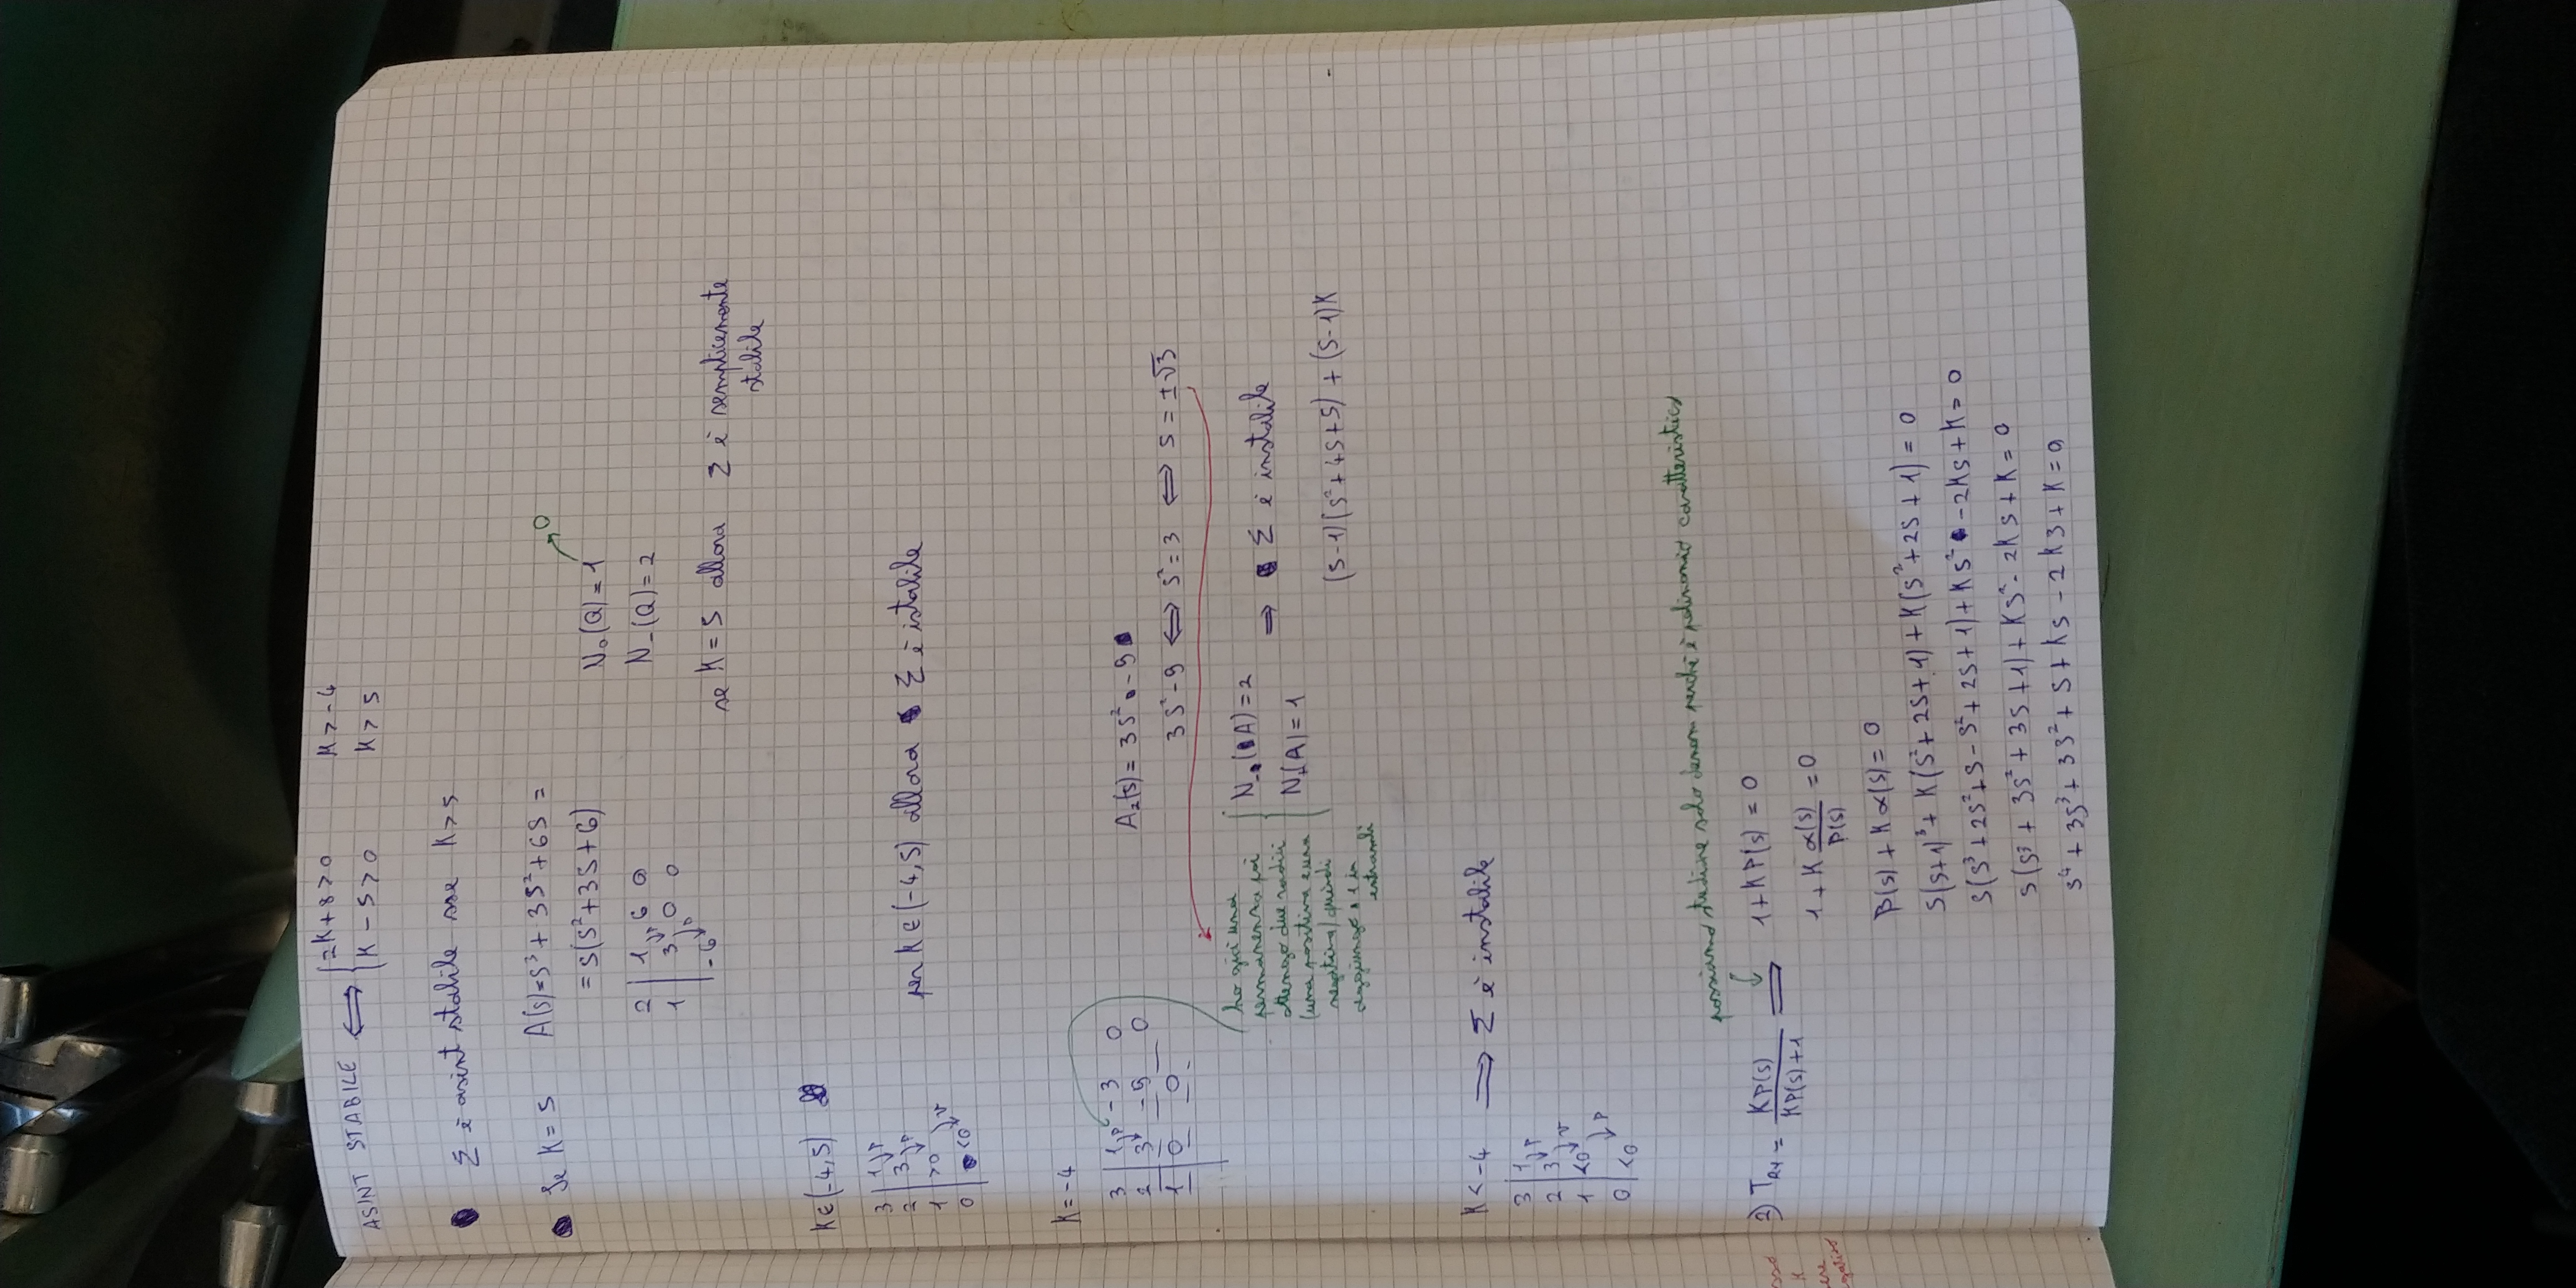 ASINT STABILE ⟺ { 2K+8>0 K>-4
K-5>0 K>5
Σ è asint stabile sse K>5
Se K=5 A(s)=s³+3s²+6s =
=s(s²+3s+6)
N₀(Q)=1 → 0
N₋(Q)=2
2 | 1 6 0
1 | 3 0 0
| -6
p
p
se K=5 allora Σ è semplicemente
stabile
K∈(-4,5)
3 | 1 p
2 | 3 p
1 | >0 v
0 | <0
per K∈(-4,5) allora Σ è istabile
K=-4
3 | 1 p -3 0
2 | 3 -9 0
1 | 0 0
A₂(s)= 3s² -9
3s²-9 ⟺ s²=3 ⟺ s=±√3
ho già una
permanenza poi
ottengo due radici
(una positiva e una
negativa) quindi
aggiungo 1 in
entrambi
N₋(A)=2
N₊(A)=1
⇒ Σ è instabile
(s-1)(s²+4s+5)+(s-1)K
K<-4 ⟹ Σ è instabile
3 | 1 p
2 | 3 v
1 | <0 p
0 | <0
possiamo studiare solo denom perchè è polinomio caratteristico
2) T_RY = KP(s)/(KP(s)+1) ⟹ 1+KP(s)=0
1+K α(s)/β(s) =0
β(s)+Kα(s)=0
s(s+1)³+K(s²+2s+1)+K(s²+2s+1)=0
s(s³+2s²+s-s²+2s+1)+Ks² -2Ks+K=0
s(s³+3s²+3s+1)+Ks²-2Ks+K=0
s⁴+3s³+3s²+s+Ks-2Ks+K=0